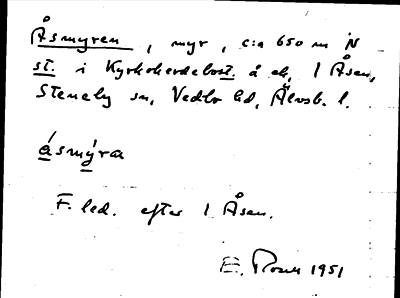 Åsmyren, myr, c:a 650 m N
st. i Kyrkoherdebost. å ek, 1 Åsen,
Steneby sn, Vedbo hd, Älvsb. l.
åsmýra
F. led. efter 1 Åsen.
E. Rosén 1951